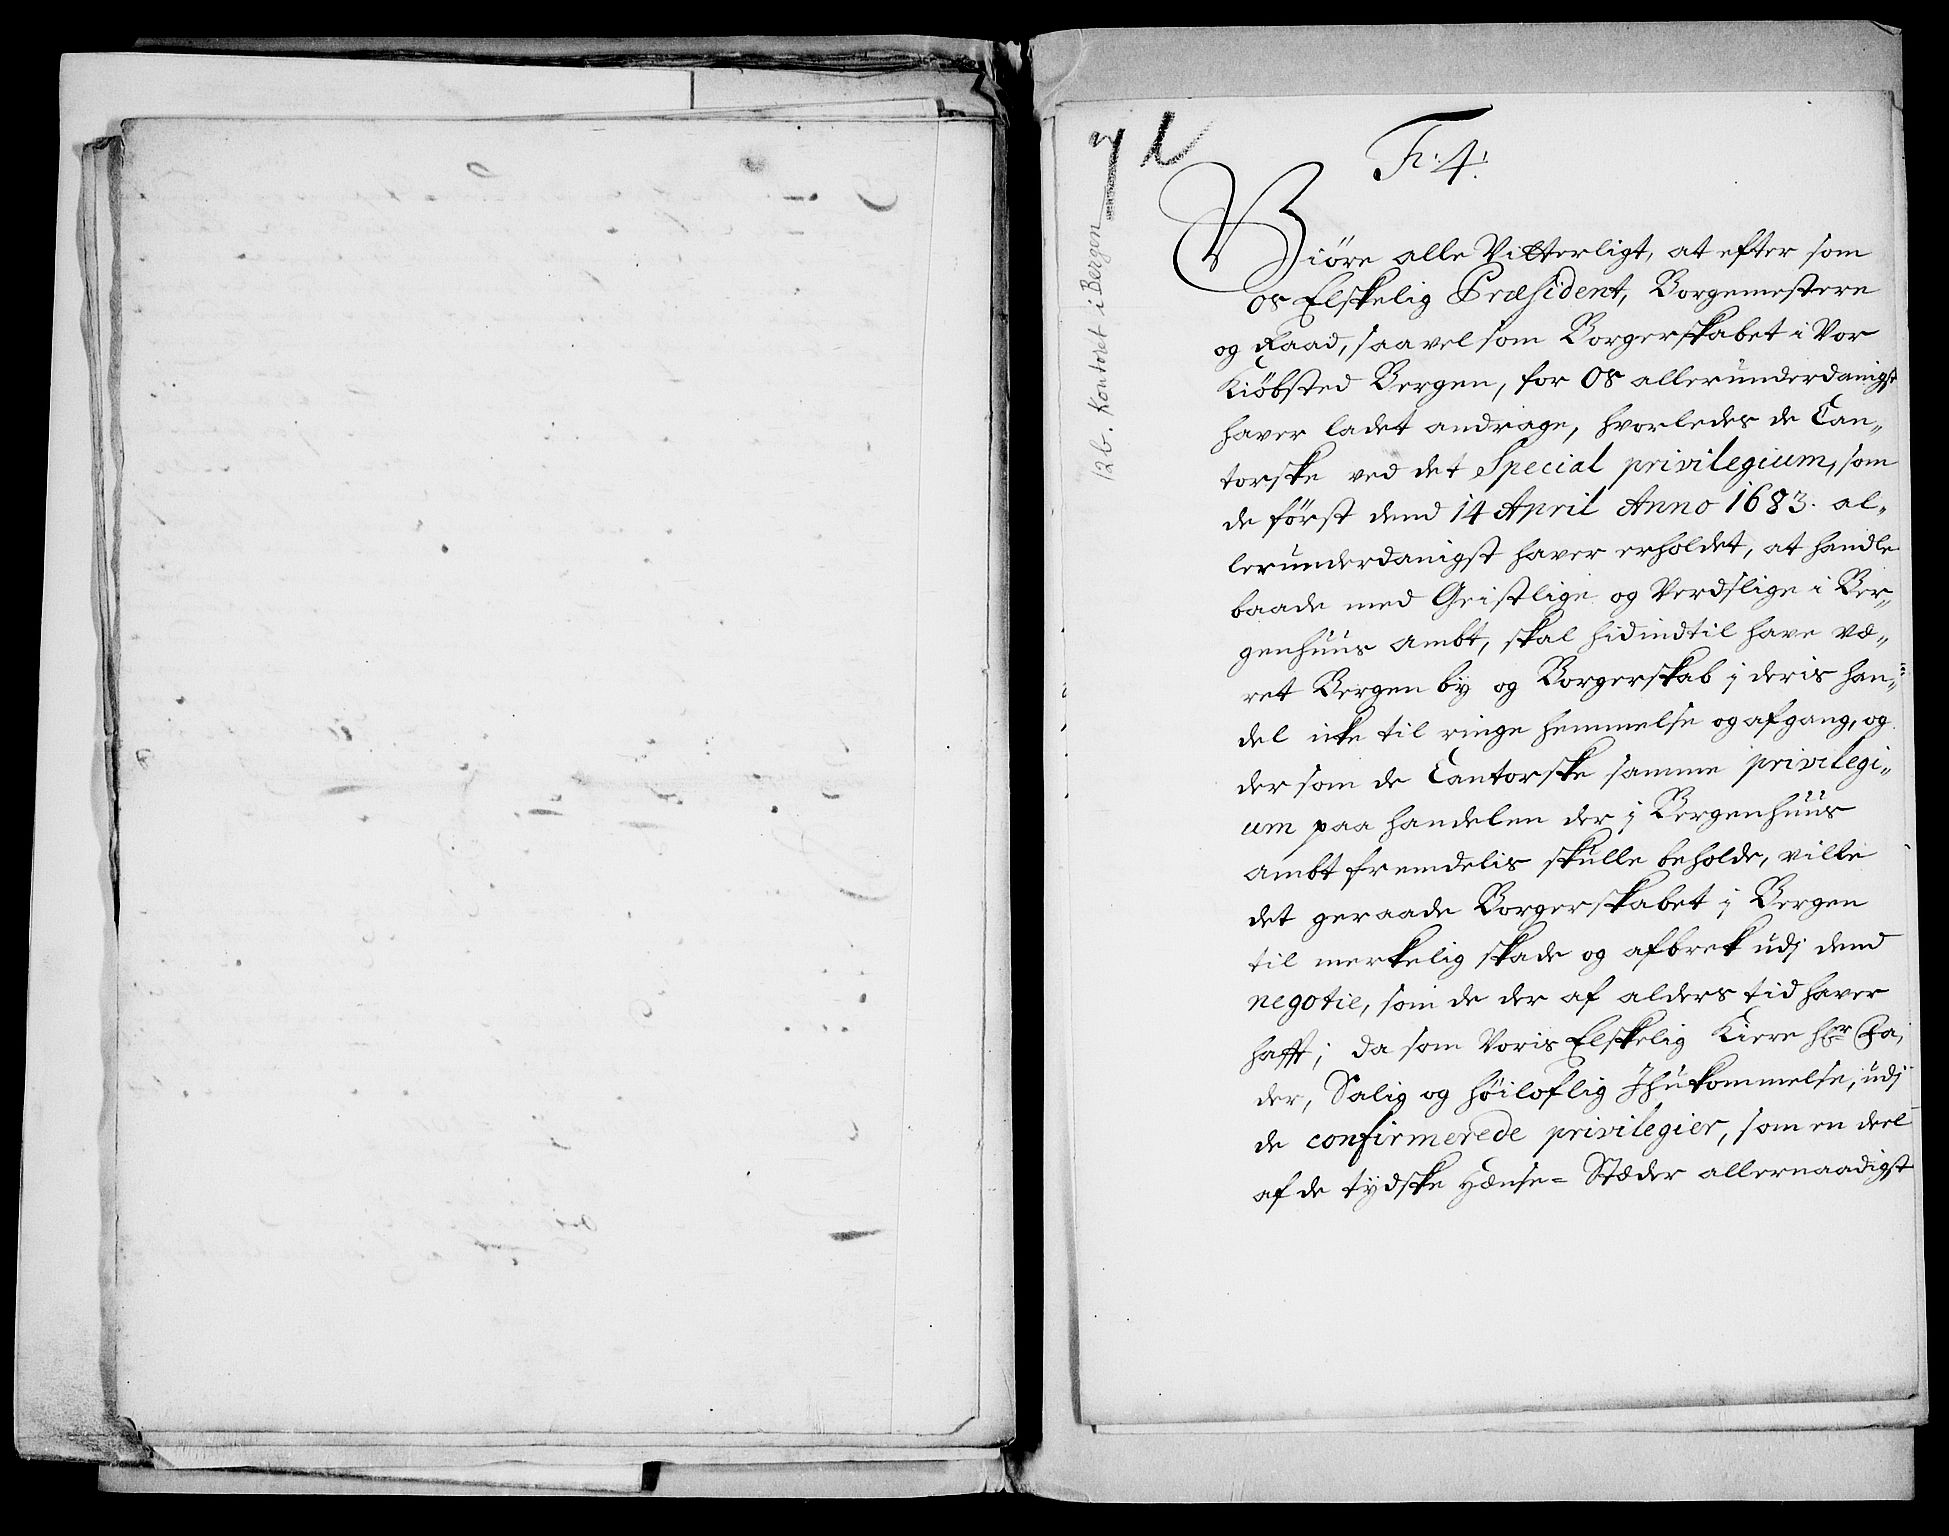 12b. Kontoret i Bergen
Fr: 4:
Giöre alle Vitterligt, at efter som
os Elskelig Præsident, Borgemestere
og Raad, saavelsom Borgerskabet i Vor
Kiöbsted Bergen, for Os allerunderdanigst
haver ladet andrage, hvorledes de Can„
torske ved det Special privilegium, som
de först dend 14 April Anno 1683. al„
lerunderdanigst haver erholdet, at handle
baade med Geistlige og Verdslige i Ber„
genhuus Ambt, skal hidindtil have væ„
ret Bergen by og Borgerskab i deris han„
del icke til ringe hemmelse og afgang, og
der som de Cantorske samme privilegi„
um paa handelen der i Bergenhuus
Ambt fremdelis skulle beholde, ville
det geraade Borgerskabet i Bergen
til merkelig skade og afbrek udj dend
negotie, som de der af alders tid haver
hafft; da som Voris Elskelig Kiere hr Fa„
der, Salig og höiloflig Ihukommelse, udj
de confirmerede privilegier, som en deel
af de tydske Hænse= Stæder allernaadigst